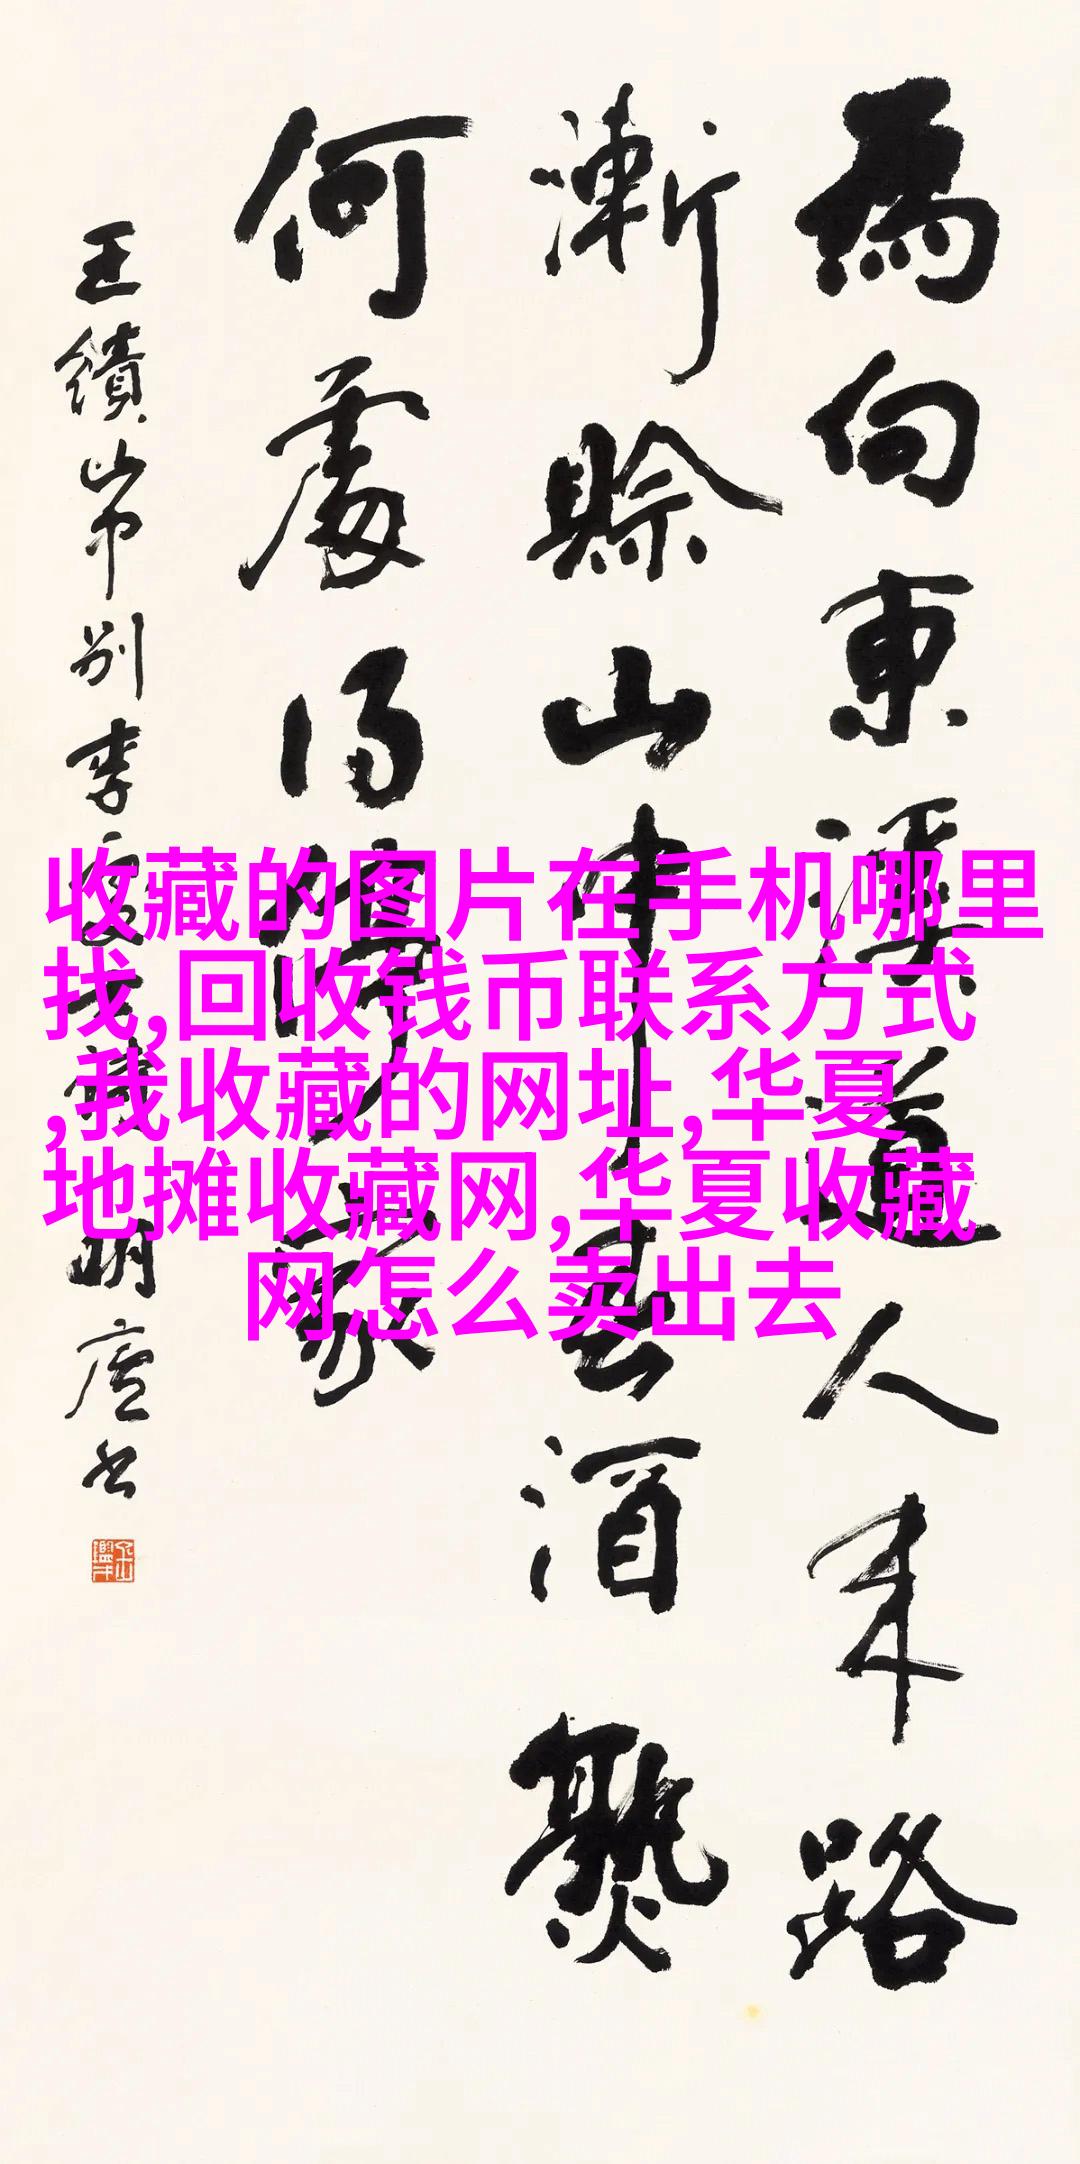 為向東溪道人來路
漸賒山中春酒熟
何處得停家
王績山中別李處士詩明廬書
收藏的图片在手机哪里
找,回收钱币联系方式
,我收藏的网址,华夏
地摊收藏网,华夏收藏
网怎么卖出去